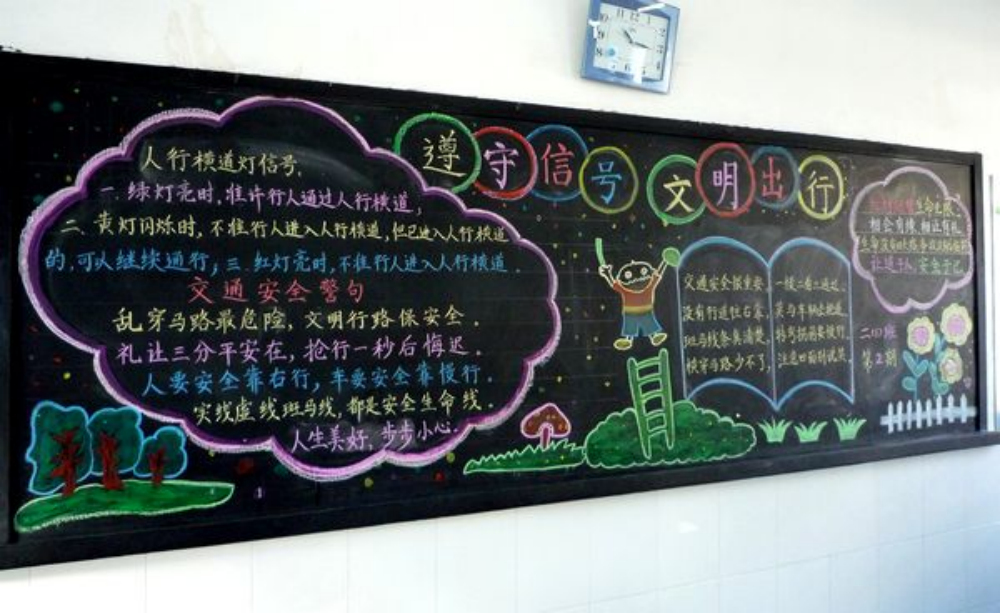 遵守信号 文明出行
人行横道灯信号:
一.绿灯亮时,准许行人通过人行横道;
二.黄灯闪烁时,不准行人进入人行横道,但已进入人行横道
的,可以继续通行;三.红灯亮时,不准行人进入人行横道.
交通安全警句
乱穿马路最危险,文明行路保安全.
礼让三分平安在,抢行一秒后悔迟.
人要安全靠右行,车要安全靠慢行.
实线虚线斑马线,都是安全生命线.
人生美好,步步小心.
交通安全很重要,
没有行道往右靠,
斑马线条奥清楚,
横穿马路少不了,
一慢二看三通过,
莫与车辆去抢道
生命无限.
相会有缘,相让有礼
礼让于人,安全于己
二(1)班
第2期